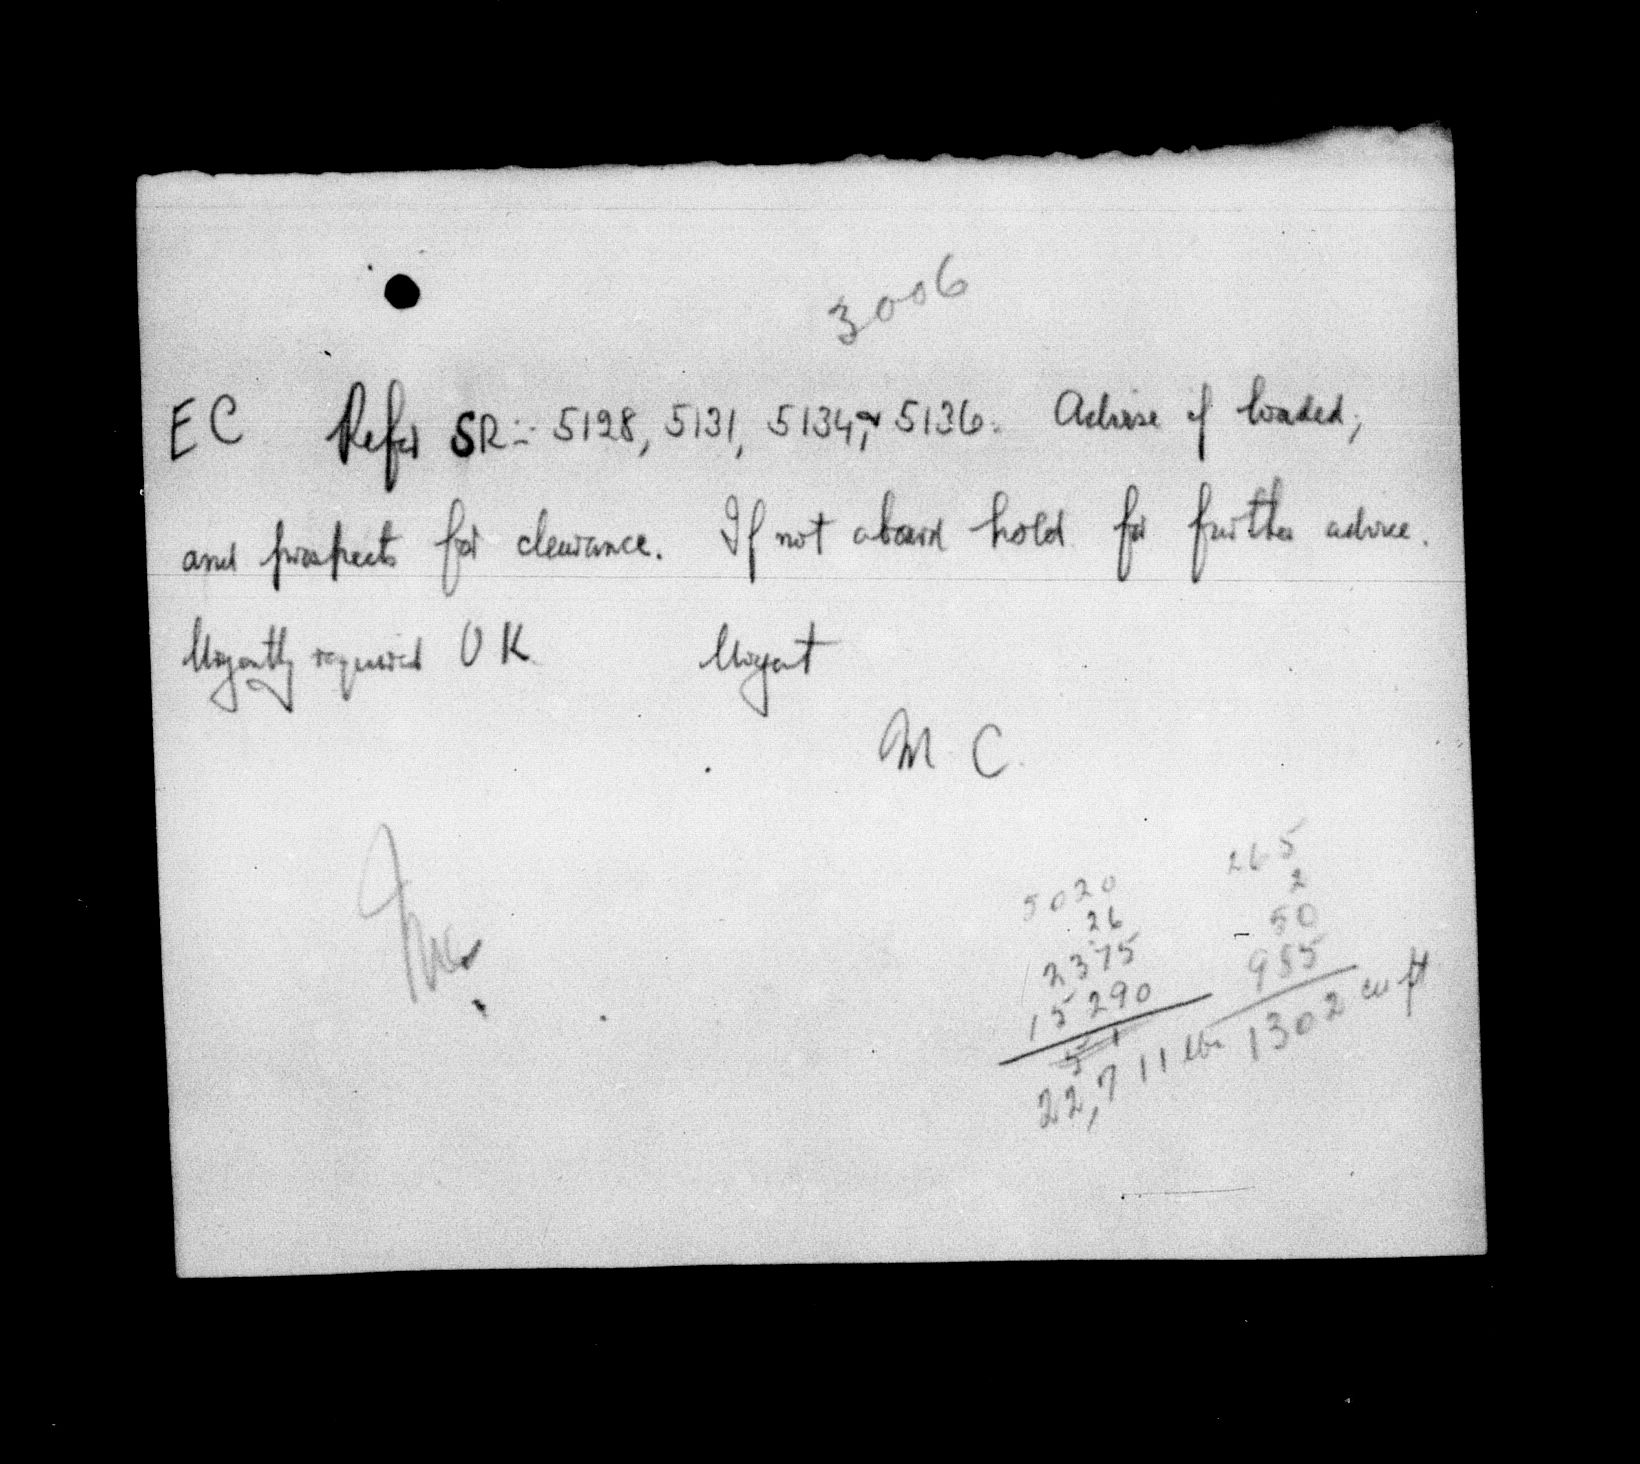 3006
EC Refer SR:- 5128, 5131, 5134, & 5136. Advise if loaded,
and prospects for clearance. If not aboard hold for further advice.
Urgently required UK Urgent
M C
5020
26
2375
15290
51
22,711 lbs
265
2
50
985
1302 cu ft